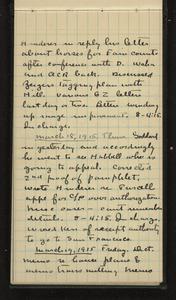 in reply his letter
about horses for Farm counts
after conference with D. Wahn
and ACR back. Discussed
Zeigers tagging plan with
Hill. Various G2 letters
last day or two. Better winding
up range improvement. 8-4:15.
In charge.
March 18, 1915 Thurs.
in yesterday and accordingly
he went to see Hubbell who is
going to appeal. Corrected
2nd proof of pamphlet,
wrote Headner re Purcell
appt for over authorization
horse owner - can't remember
details. 8-4:15. In charge.
Word Kerr of receipt authority
to go to San Francisco.
March 19, 1915 Friday. Dict.
memo re house plans &
memo mess milling memo